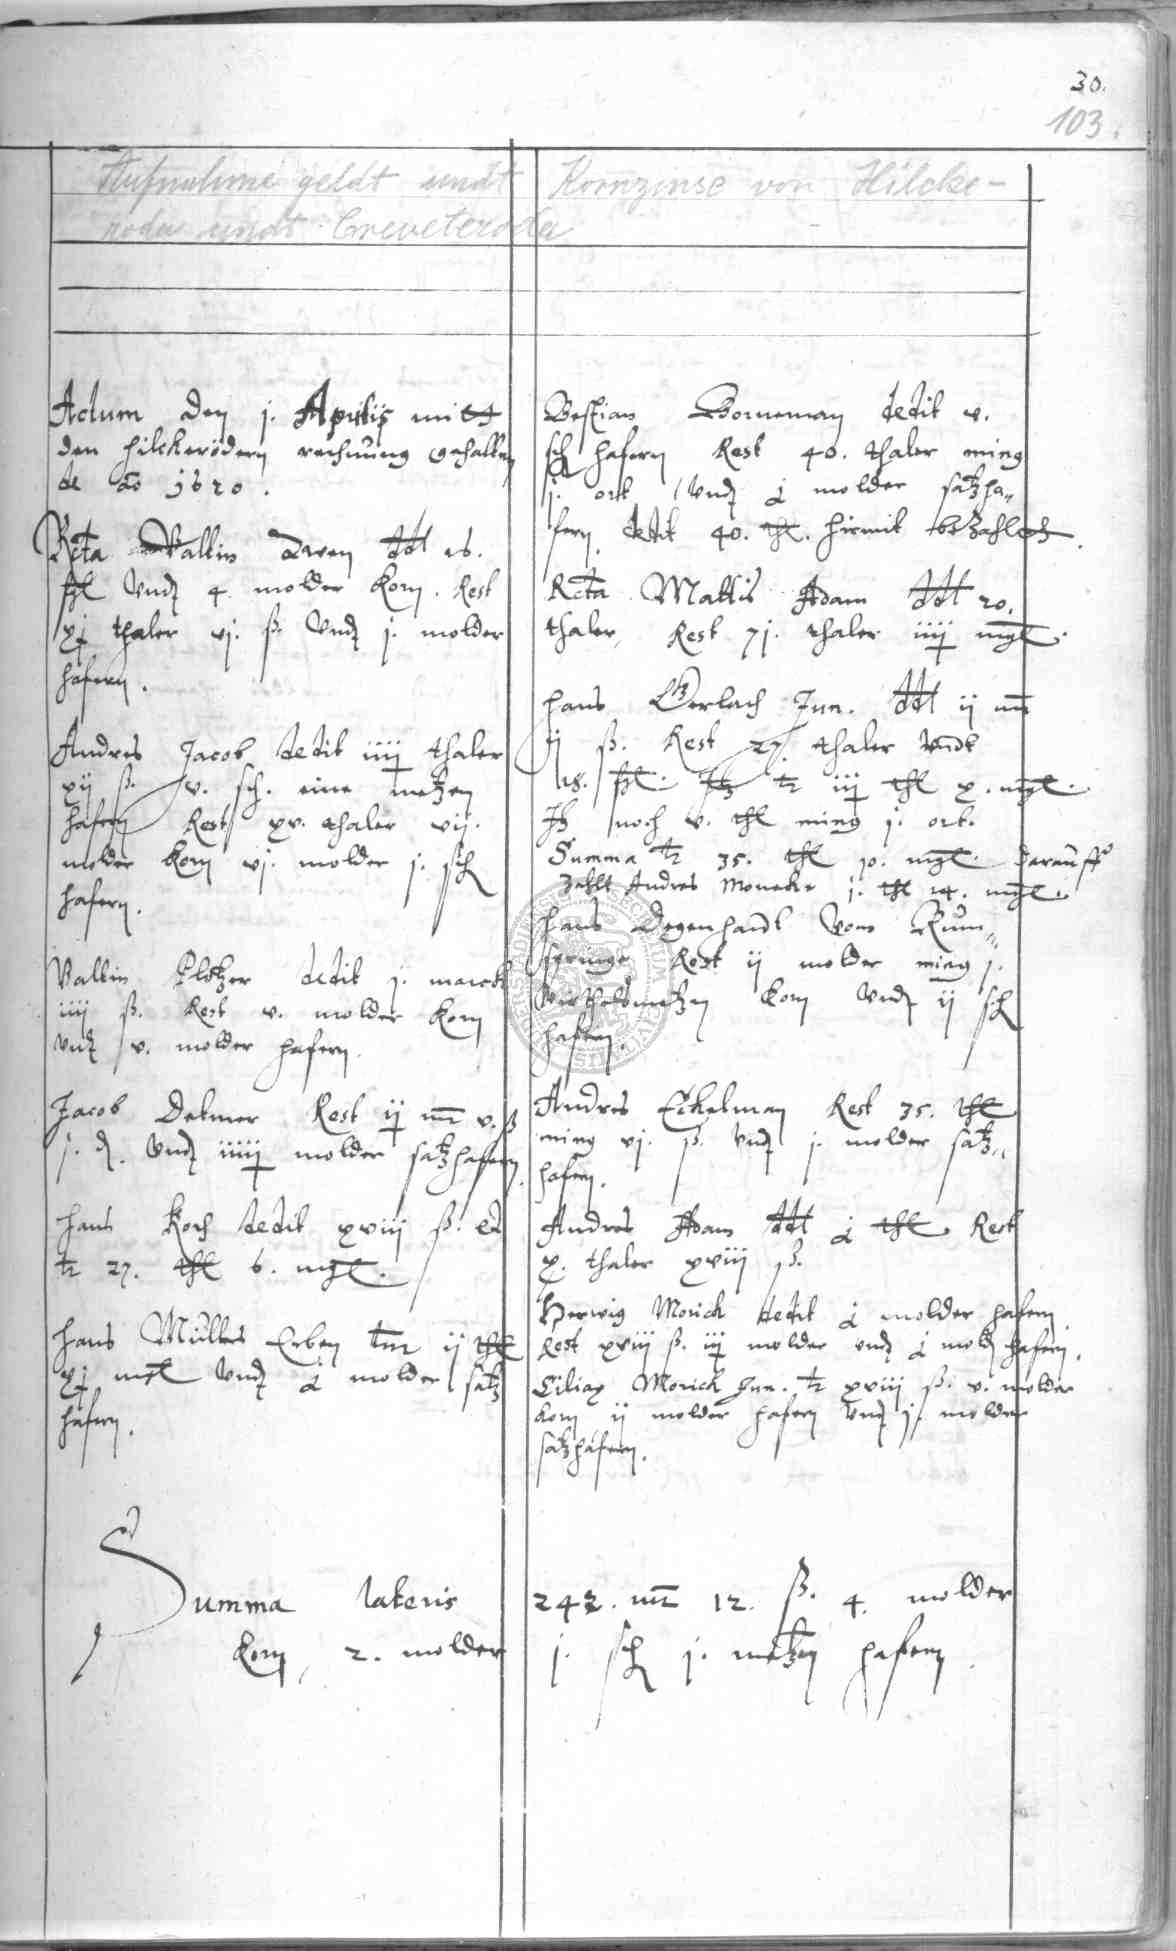 30.
103.
Aufnahme geldt undt Kornzinse von Hilcke-
roda undt Creveteroda
Actum den j. Aprilis mitt
den Hilckerödern rechnung gehalten
de ao 1620.
Valtin ddt 16.
vnd 4. molder Korn. Rest
thaler vj. ß. vnd j. molder
hafern.
Andres Jacob dedit iiij thaler
xij ß. v. sch. eine metzen
hafern Rest xv. thaler vij.
molder Korn vj. molder j. sch
hafern.
Valtin Plötzer dedit j. marck
iiij ß. Rest v. molder Korn
vnd v. molder hafern.
Jacob Detmer Rest ij mr v. ß
j. d. vnd iiiij molder satzhafern.
Hans Koch dedit xviij ß. et
27. thl 6. mgl.
Hans Müllers Erben ij thl
xj mgl vnd á molder satz
hafern.
Bestian Borneman dedit v.
sch hafern Rest 40. thaler ming
j. ort vnd á molder satzha-
fern. dedit 40. thl. hirmit bezahlet.
Mattis Adam ddt 20.
thaler, Rest 7j. thaler iiij mgl.
Hans Gerlach Jun. ddt ij mr
ij ß. Rest 27. thaler vndt
18. iij thl x. mgl.
noch v. thl ming j. ort.
Summa 35. thl 10. mgl. darauff
zahlt Andres Monecke j. thl 14. mgl.
Hans Degenhardt vom Rum
springe Rest ij molder ming j.
Korn vnd ij sch
hafern.
Andres Eckelman Rest 35. thl
ming vj. ß. vnd j. molder satz
hafern.
Andres Adam ddt á thl Rest
x. thaler xviij ß.
Herwig Morick dedit á molder hafern
Rest xviij ß. iij molder vnd á mold hafern.
Ciliax Morick Jun. xviij ß. v. molder
Korn ij molder hafern vnd j. molder
satzhafern.
Summa lateris 242. mr 12. ß. 4. molder
Korn, 2. molder j. sch j. metzen hafern.